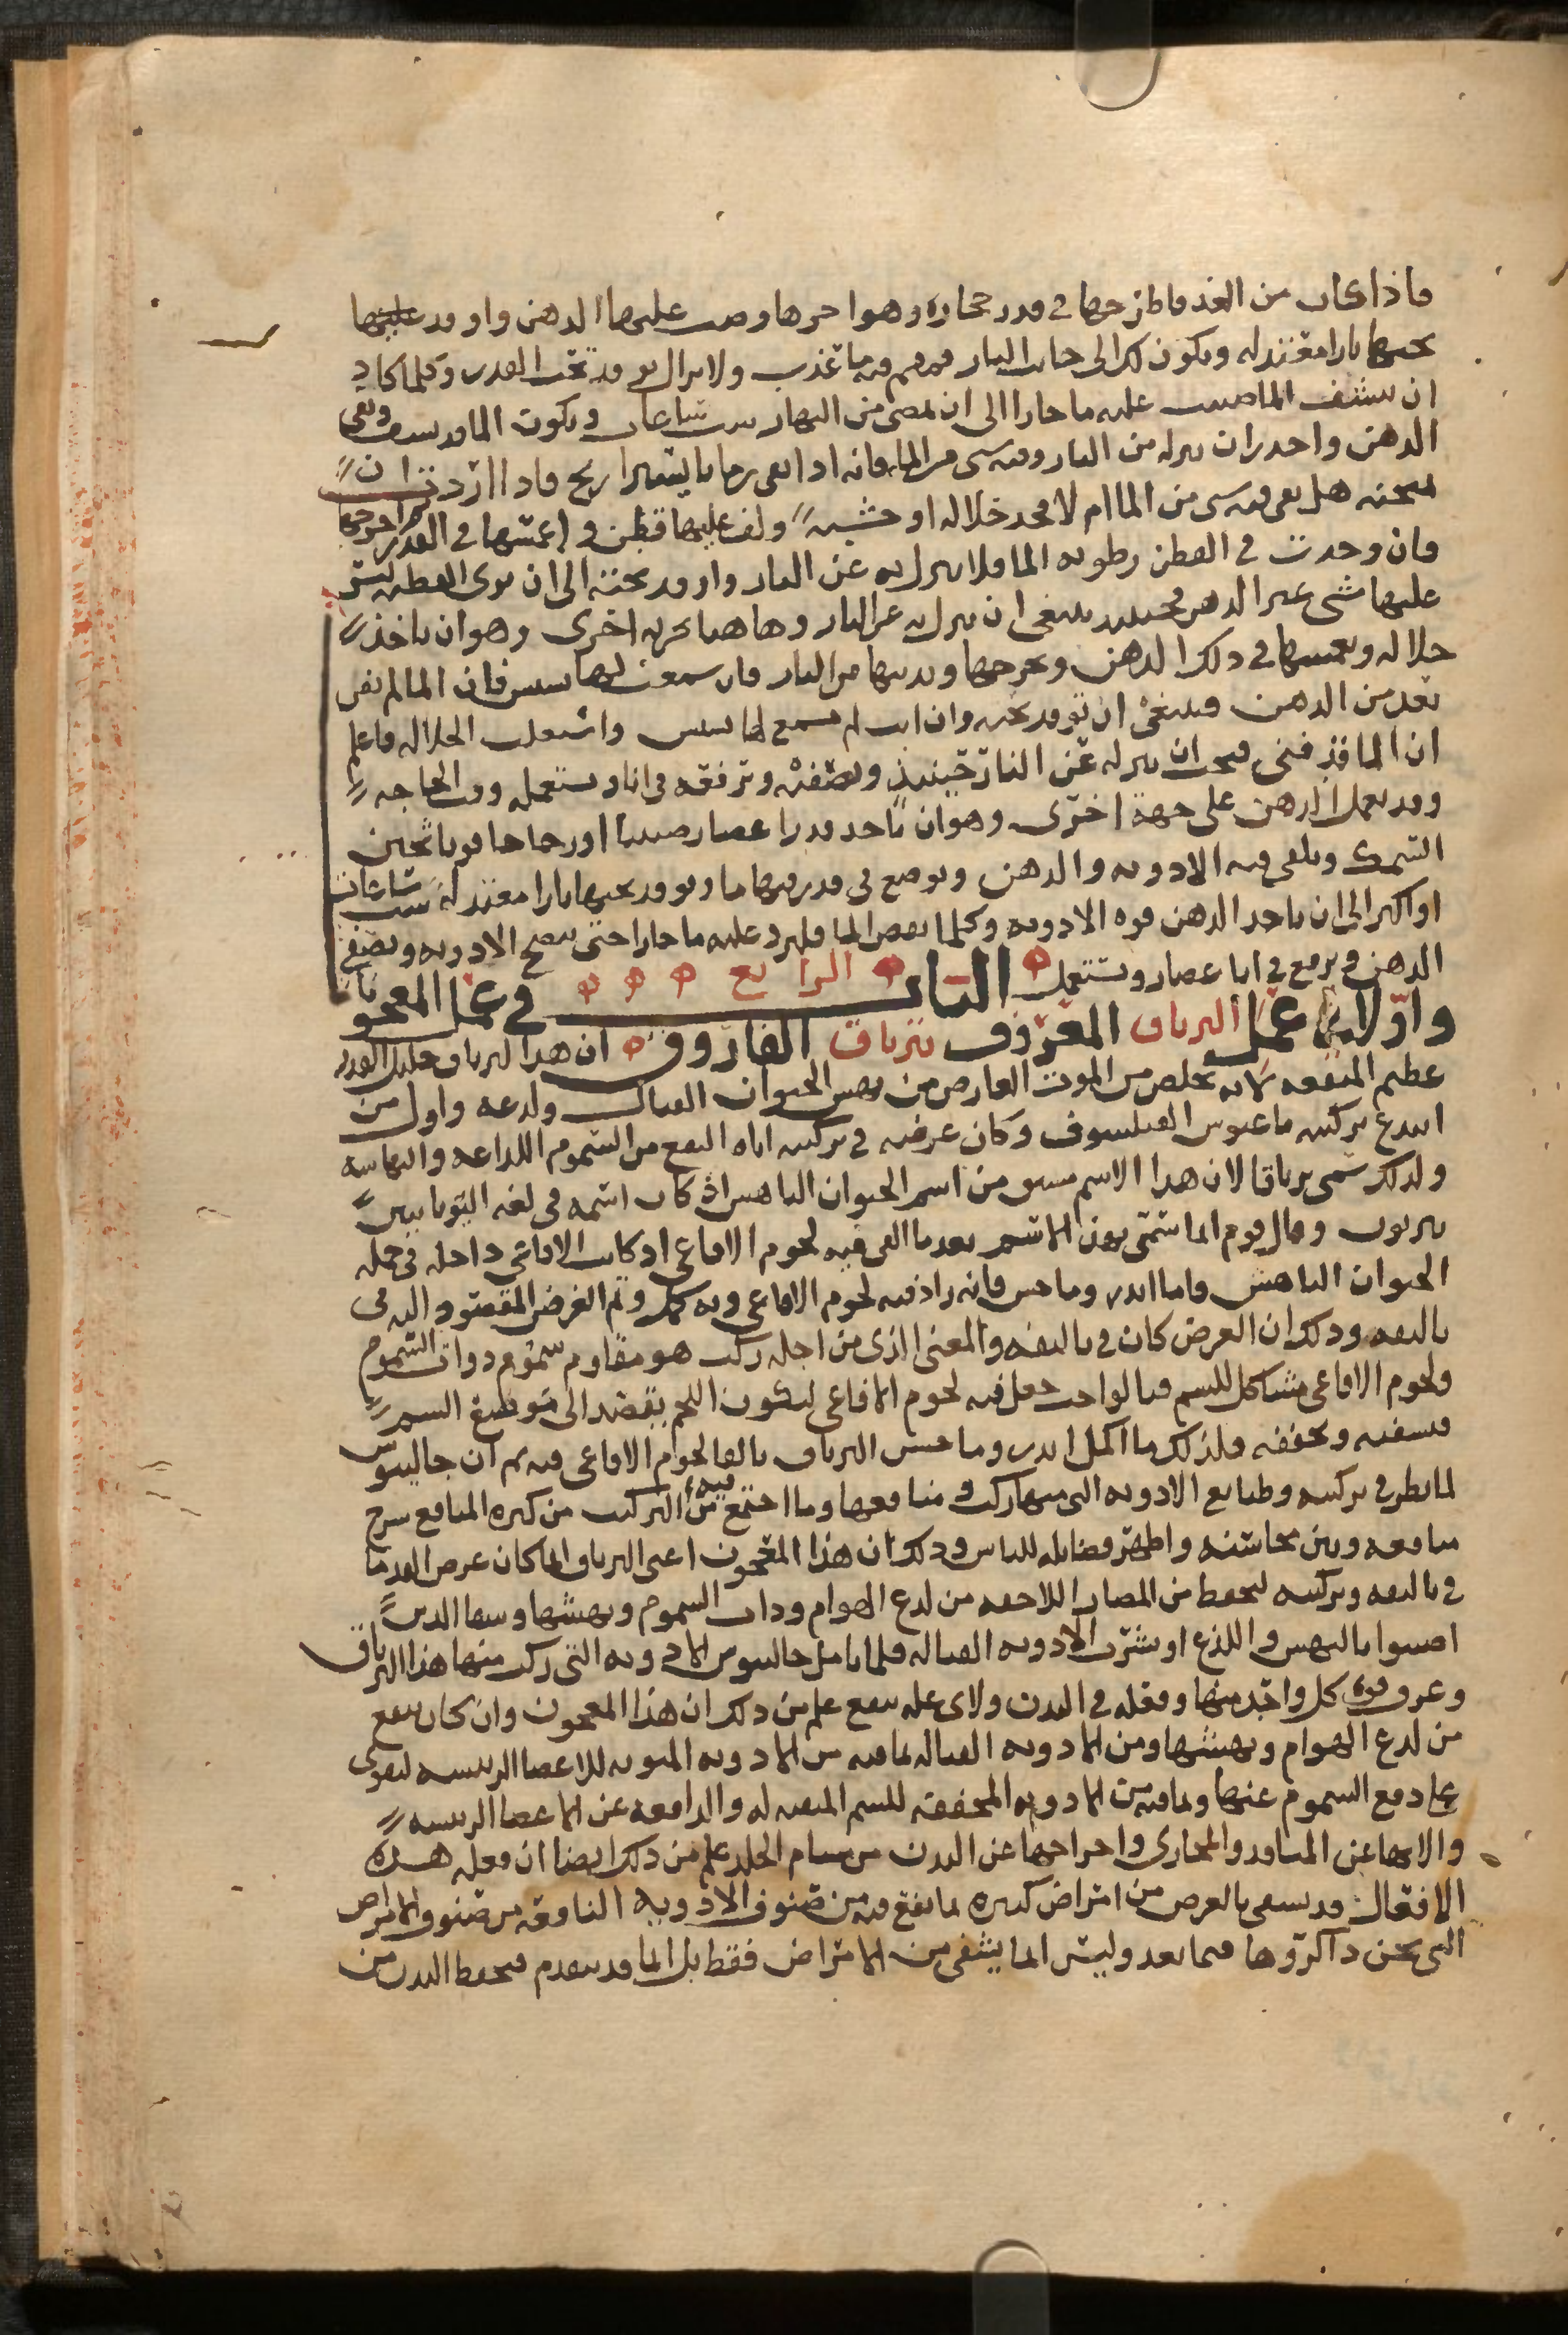 فاذا كان من الغد فاطرحها في قدر حجارة وهو احرها وصب عليها الدهن واوقد عليها
تحتها نارا معتدله ويكون لك الى جانب النار قمقم فيه ما عذب ولا يزال يوقد تحت القدر وكلما كاد
ان ينشف الما صببت عليه ما حارا الى ان يمضي من النهار ست ساعات ويكون الما قد نشف وبقي
الدهن واحذر ان تنزله من النار وفيه شي من الما فانه اذا بقي رما بايسر ريح فاذا اردت ان
تمتحنه هل بقي فيه شي من الما ام لا فخذ خلاله او خشبه ولف عليها قطن و اغمسها في القدر واخرجها
فان وجدت في القطن رطوبه الما فلا تنزل به عن النار واوقد تحته الى ان ترى القطنه ليس
عليها شي غير الدهن فحينيذ ينبغي ان تنزل به عن النار وهاهنا تجربه اخرى وهو ان تاخذ
خلاله وتغمسها في ذلك الدهن وتخرجها وتدنيها من النار فان سمعت لها نشيش فان الما لم يفن
بعد من الدهن فينبغي ان توقد تحته وان انت لم تسمع لها نشيش واشتعلت الخلاله فاعلم
ان الما قد فني فيجب ان تنزله عن النار حينيذ وتصفيه وترفعه في انا وتستعمله وقت الحاجه
وقد يعمل الدهن على جهة اخرى وهو ان تاخذ قدرا غضار صينيا او زجاجا قويا ثخين
السمك ويلقى فيه الادويه والدهن ويوضع في قدر فيها ما ويوقد تحتها نارا معتدله ست ساعات
او اكثر الى ان ياخذ الدهن قوه الادويه وكلما نقص الما فليزد عليه ما حارا حتى تنضج الادويه ويصفى
الدهن ويرفع في انا غضار ويستعمل الباب الرابع في عمل المعجونات
واولا في عمل الترياق المعروف بترياق الفاروق ان هذا الترياق جليل القدر
عظيم المنفعه لانه يخلص من الموت العارض من نهش الحيوان القتال ولدغه واول من
ابتدع تركيبه ماغنوس الفيلسوف وكان غرضه في تركيبه اياه النفع من السموم اللداغه والنهاشه
ولذلك سمي ترياقا لان هذا الاسم مشتق من اسم الحيوان الناهش اذ كان اسمه في لغه اليونانيين
تيريون وقال قوم انما سمي بهذا الاسم بعد ما القي فيه لحوم الافاعي اذ كانت الافاعي داخله في جمله
الحيوان الناهش واما اندروماخس فانه زاد فيه لحوم الافاعي وبه كمل وتم الغرض المقصود اليه في
تاليفه وذلك ان الغرض كان في تاليفه والمعنى الذي من اجله ركب هو مقاومه سموم ذوات السموم
ولحوم الافاعي مشاكل للسم فبالواجب جعل فيه لحوم الافاعي ليكون اللحم يقصد الى موضع السم
فينشفه ويجففه فلذلك ما اكمل اندروماخس الترياق بالقا لحوم الافاعي فيه ثم ان جالينوس
لما نظر في تركيبه وطبايع الادويه التي منها ركب و منافعها وما اجتمع فيه من التركيب من كثره المنافع شرح
منافعه وبين محاسنه واظهر فضايله للناس وذلك ان هذا المعجون اعني الترياق انما كان غرض القدما
في تاليفه وتركيبه ليحفظ من المضار اللاحقه من لدغ الهوام وذات السموم ونهشها وشفا الذين
اصيبوا بالنهش واللدغ او بشرب الادويه القتاله فلما تامل جالينوس الادويه التي ركب منها هذا الترياق
وعرف قوه كل واحد منها وفعله في البدن ولاي عله ينفع علم من ذلك ان هذا المعجون وان كان ينفع
من لدغ الهوام ونهشها ومن الادويه القتاله لما فيه من الادويه المقويه للاعضا الرييسه لتقوى
على دفع السموم عنها وما فيه من الادويه المجففه للسم المفنيه له والدافعه عن الاعضا الرييسه
والاتها عن المنافذ والمجاري واخراجها عن البدن من مسام الجلد علم من ذلك ايضا ان فعله هذه
الافعال قد يشفي بالعرض من امراض كثيره لما يقع فيه من صنوف الادويه النافعه من صنوف الامراض
التي نحن ذاكروها فيما بعد وليس انما يشفي من الامراض فقط بل انما قد يتقدم فيحفظ البدن من